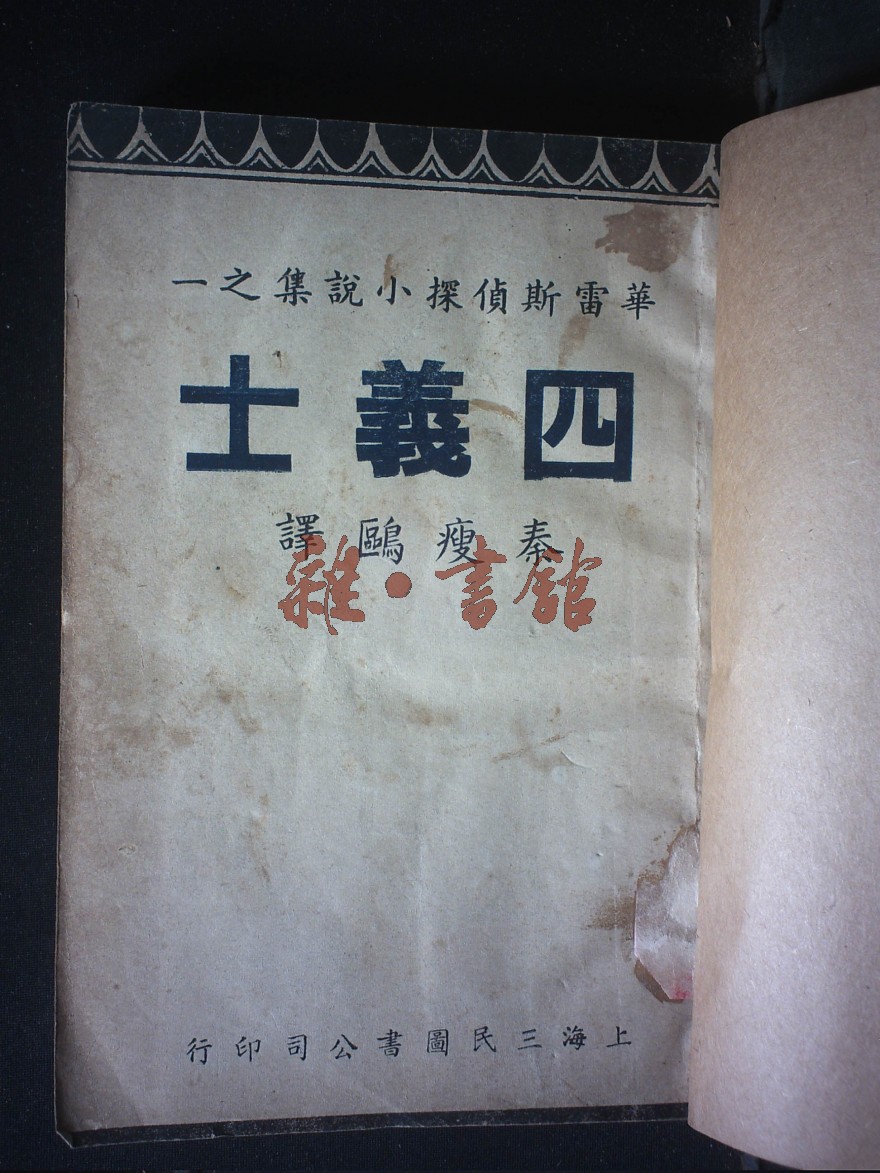 華雷斯偵探小說集之一
四義士
秦瘦鷗譯
雜·書館
上海三民圖書公司印行